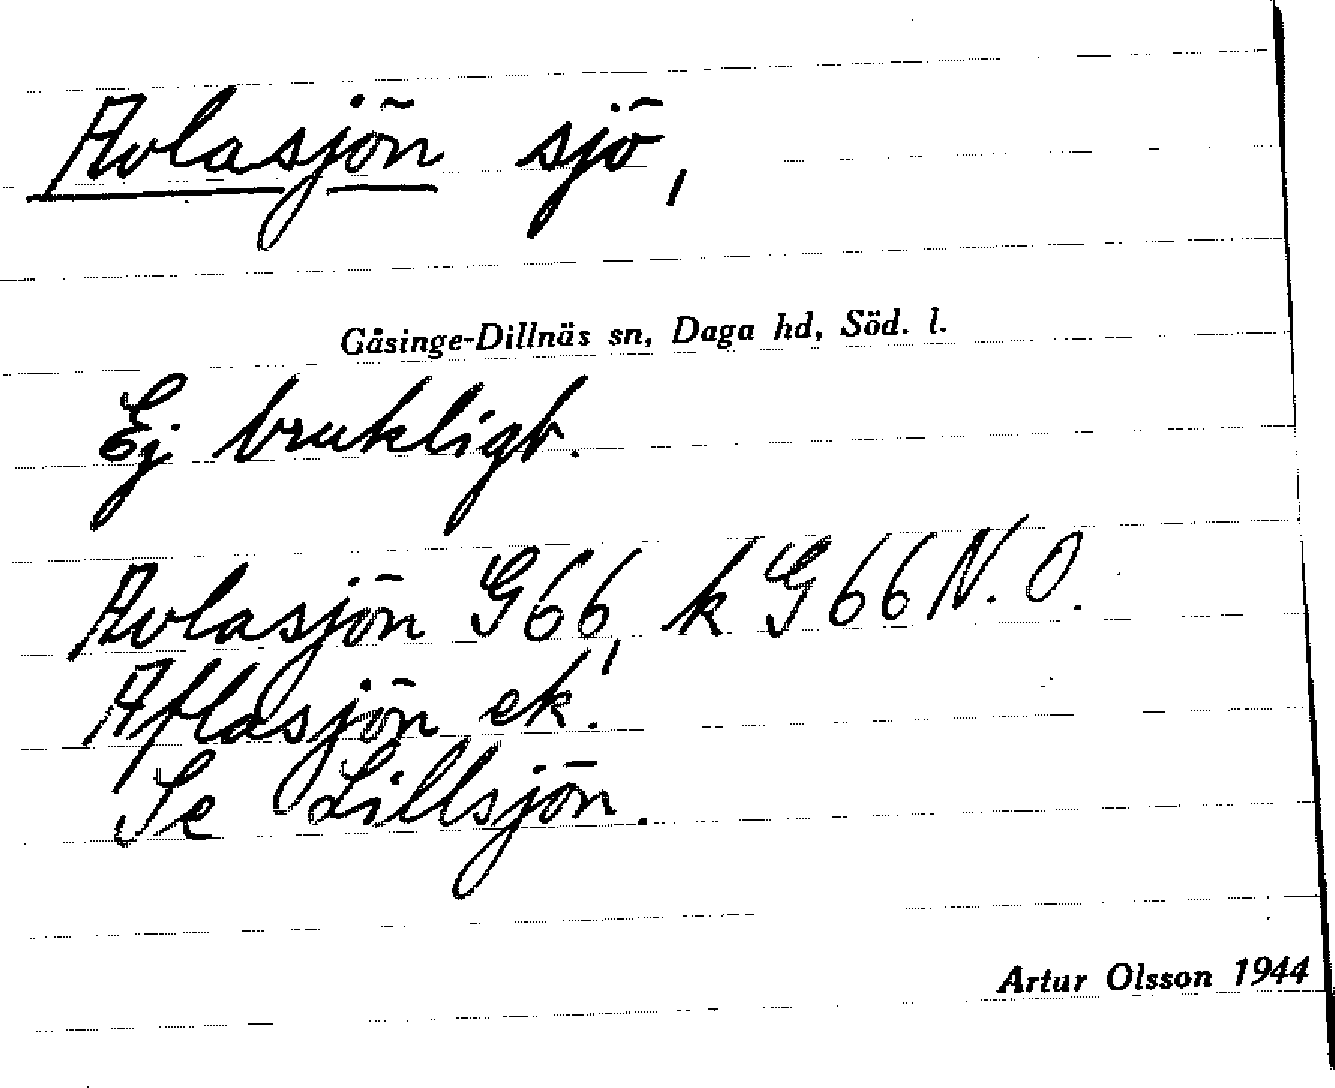 Avlasjön sjö,
Gåsinge-Dillnäs sn, Daga hd, Söd. l.
Ej brukligt.
Avlasjön G66, k G66 N.O.
Aflasjön ek.
Se Lillsjön.
Artur Olsson 1944